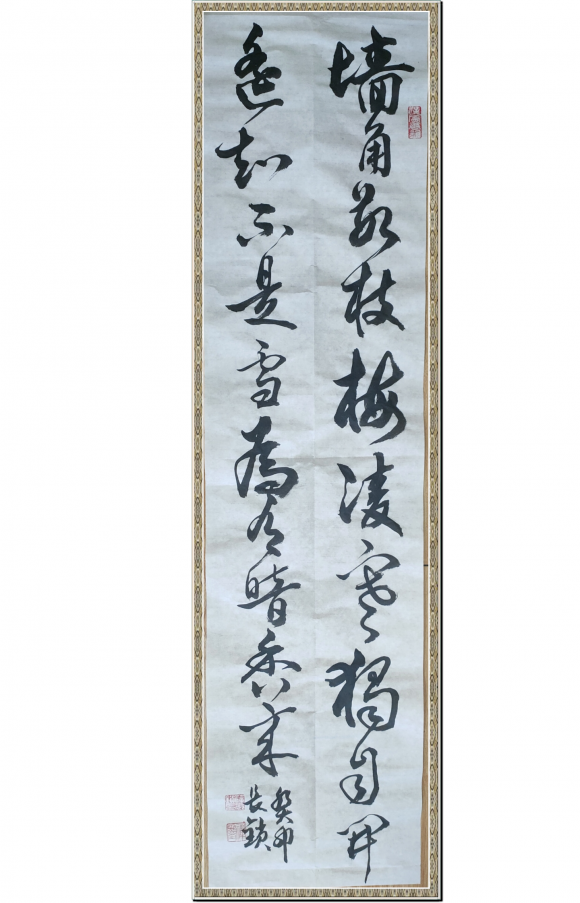 墙角数枝梅凌寒独自开
遥知不是雪为有暗香来
癸卯
長鎖